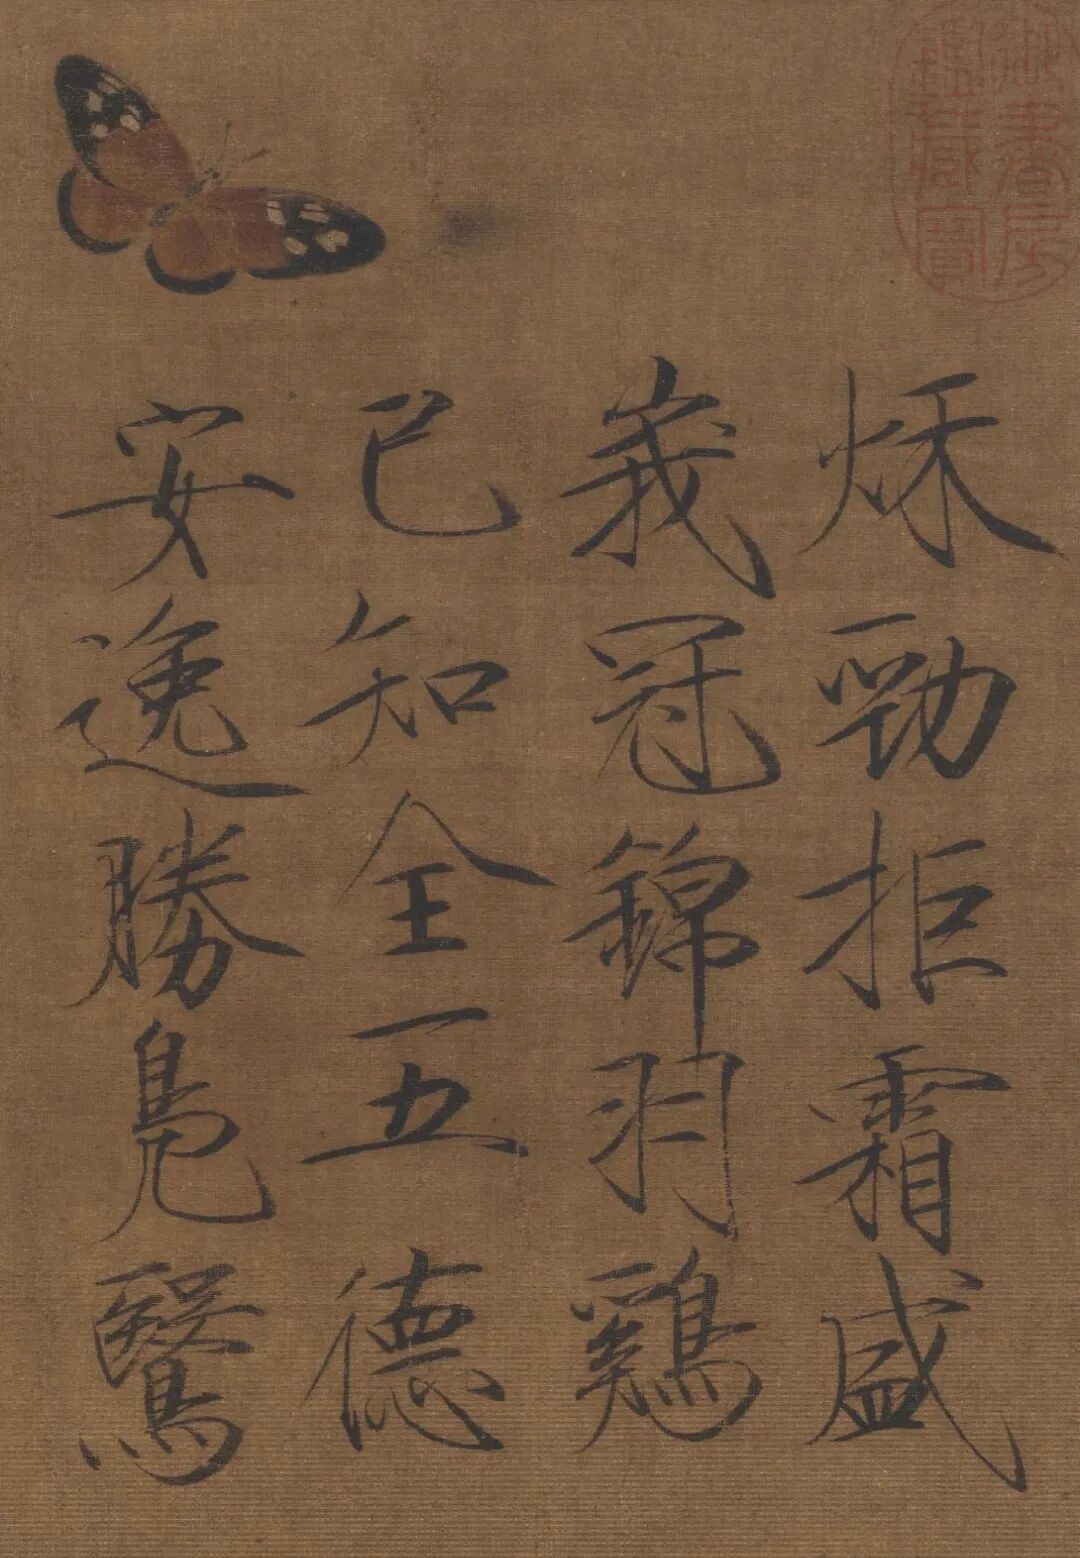 御書房
鑑藏寶
秌勁拒霜盛
峩冠錦羽鷄
已知全五德
安逸勝鳧鷖